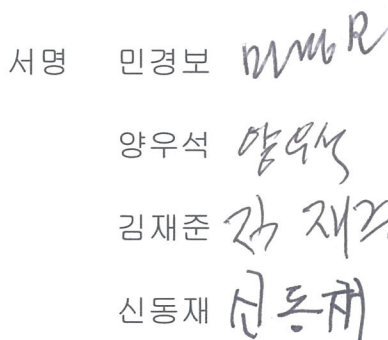 서명 민경보
양우석 양우석
김재준 김재준
신동재 신동재